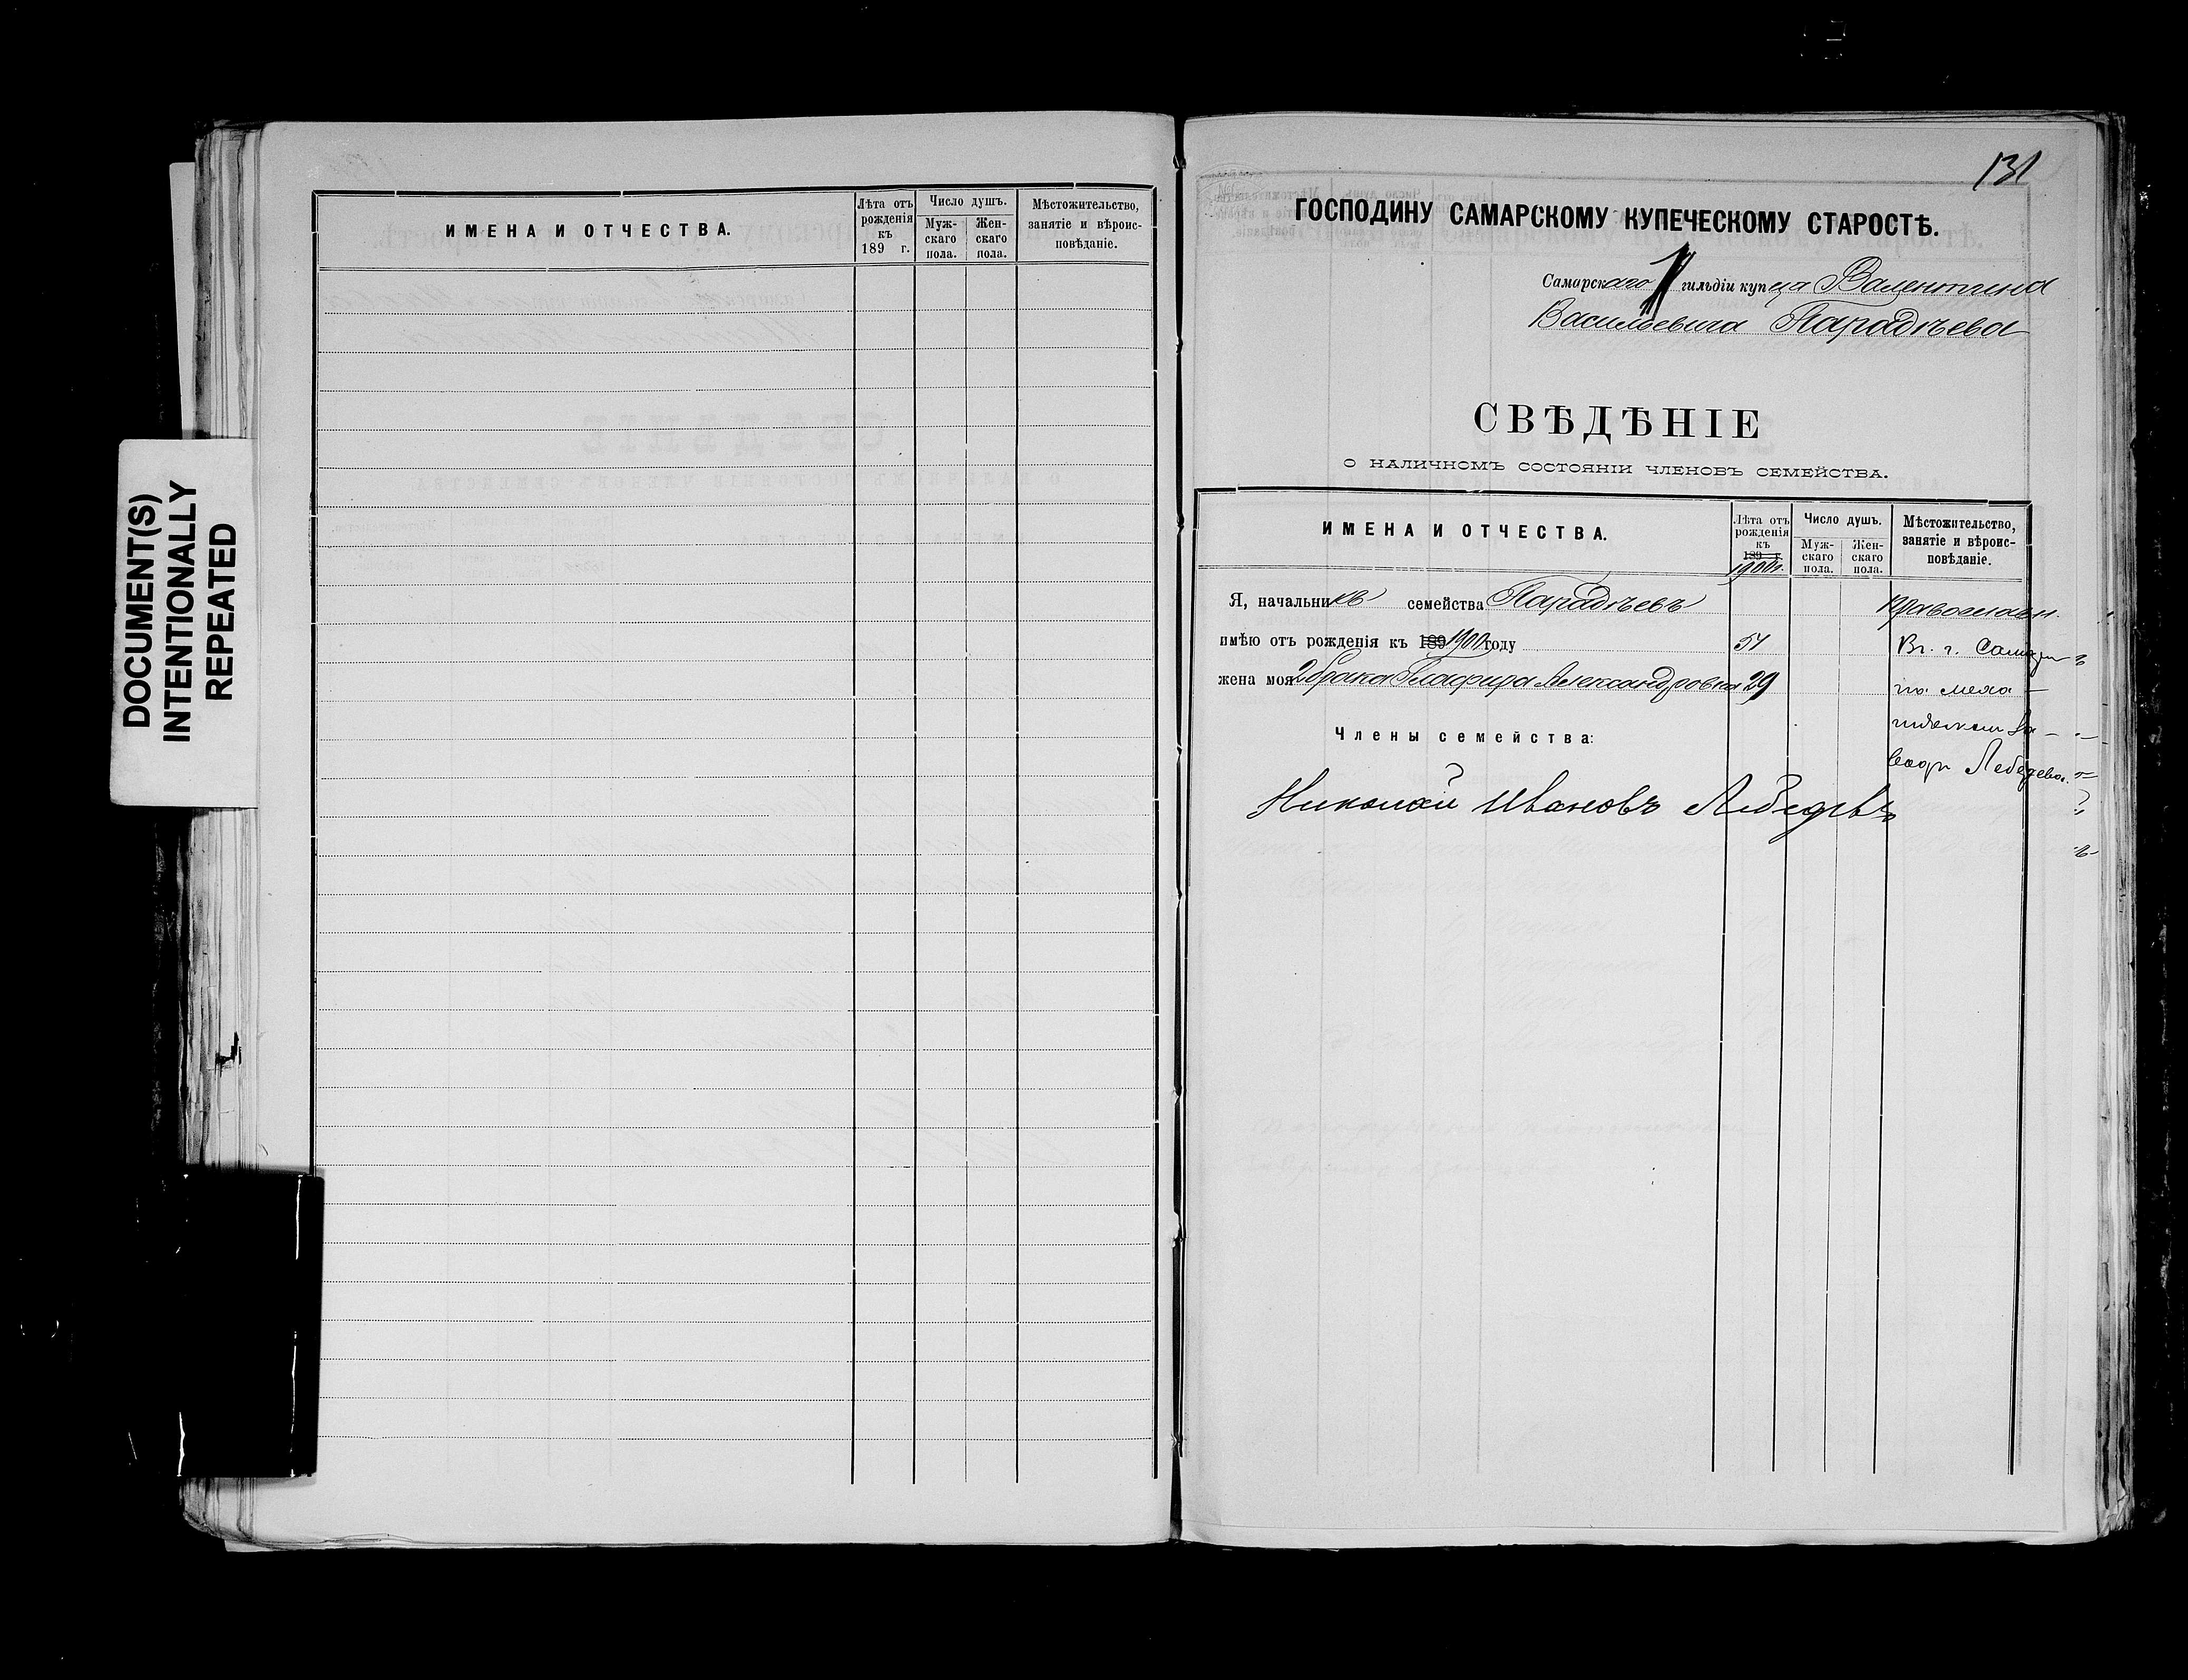 DOCUMENT(S)
INTENTIONALLY
REPEATED
ИМЕНА И ОТЧЕСТВА.
Лѣта отъ
рожденія
къ
189 г.
Число душъ.
Муж-
скаго
пола.
Жен-
скаго
пола.
Мѣстожительство,
занятіе и вѣроис-
повѣданіе.
131
ГОСПОДИНУ САМАРСКОМУ КУПЕЧЕСКОМУ СТАРОСТѢ.
Самарскаго гильдіи купца Валентина
Васильевича Парадѣева
СВѢДѢНІЕ
О НАЛИЧНОМЪ СОСТОЯНІИ ЧЛЕНОВЪ СЕМЕЙСТВА.
ИМЕНА И ОТЧЕСТВА.
Лѣта отъ
рожденія
къ
189 г.
1900 г.
Число душъ.
Муж-
скаго
пола.
Жен-
скаго
пола.
Мѣстожительство,
занятіе и вѣроис-
повѣданіе.
Я, начальникъ семейства Парадѣевъ
православн.
имѣю отъ рожденія къ 189 1900 году 51
Въ г. Самарѣ
жена моя 2 брака Глафира Александровна 29
на меха-
Члены семейства:
за-
водѣ Лебедева.
Николай Ивановъ Лебедевъ